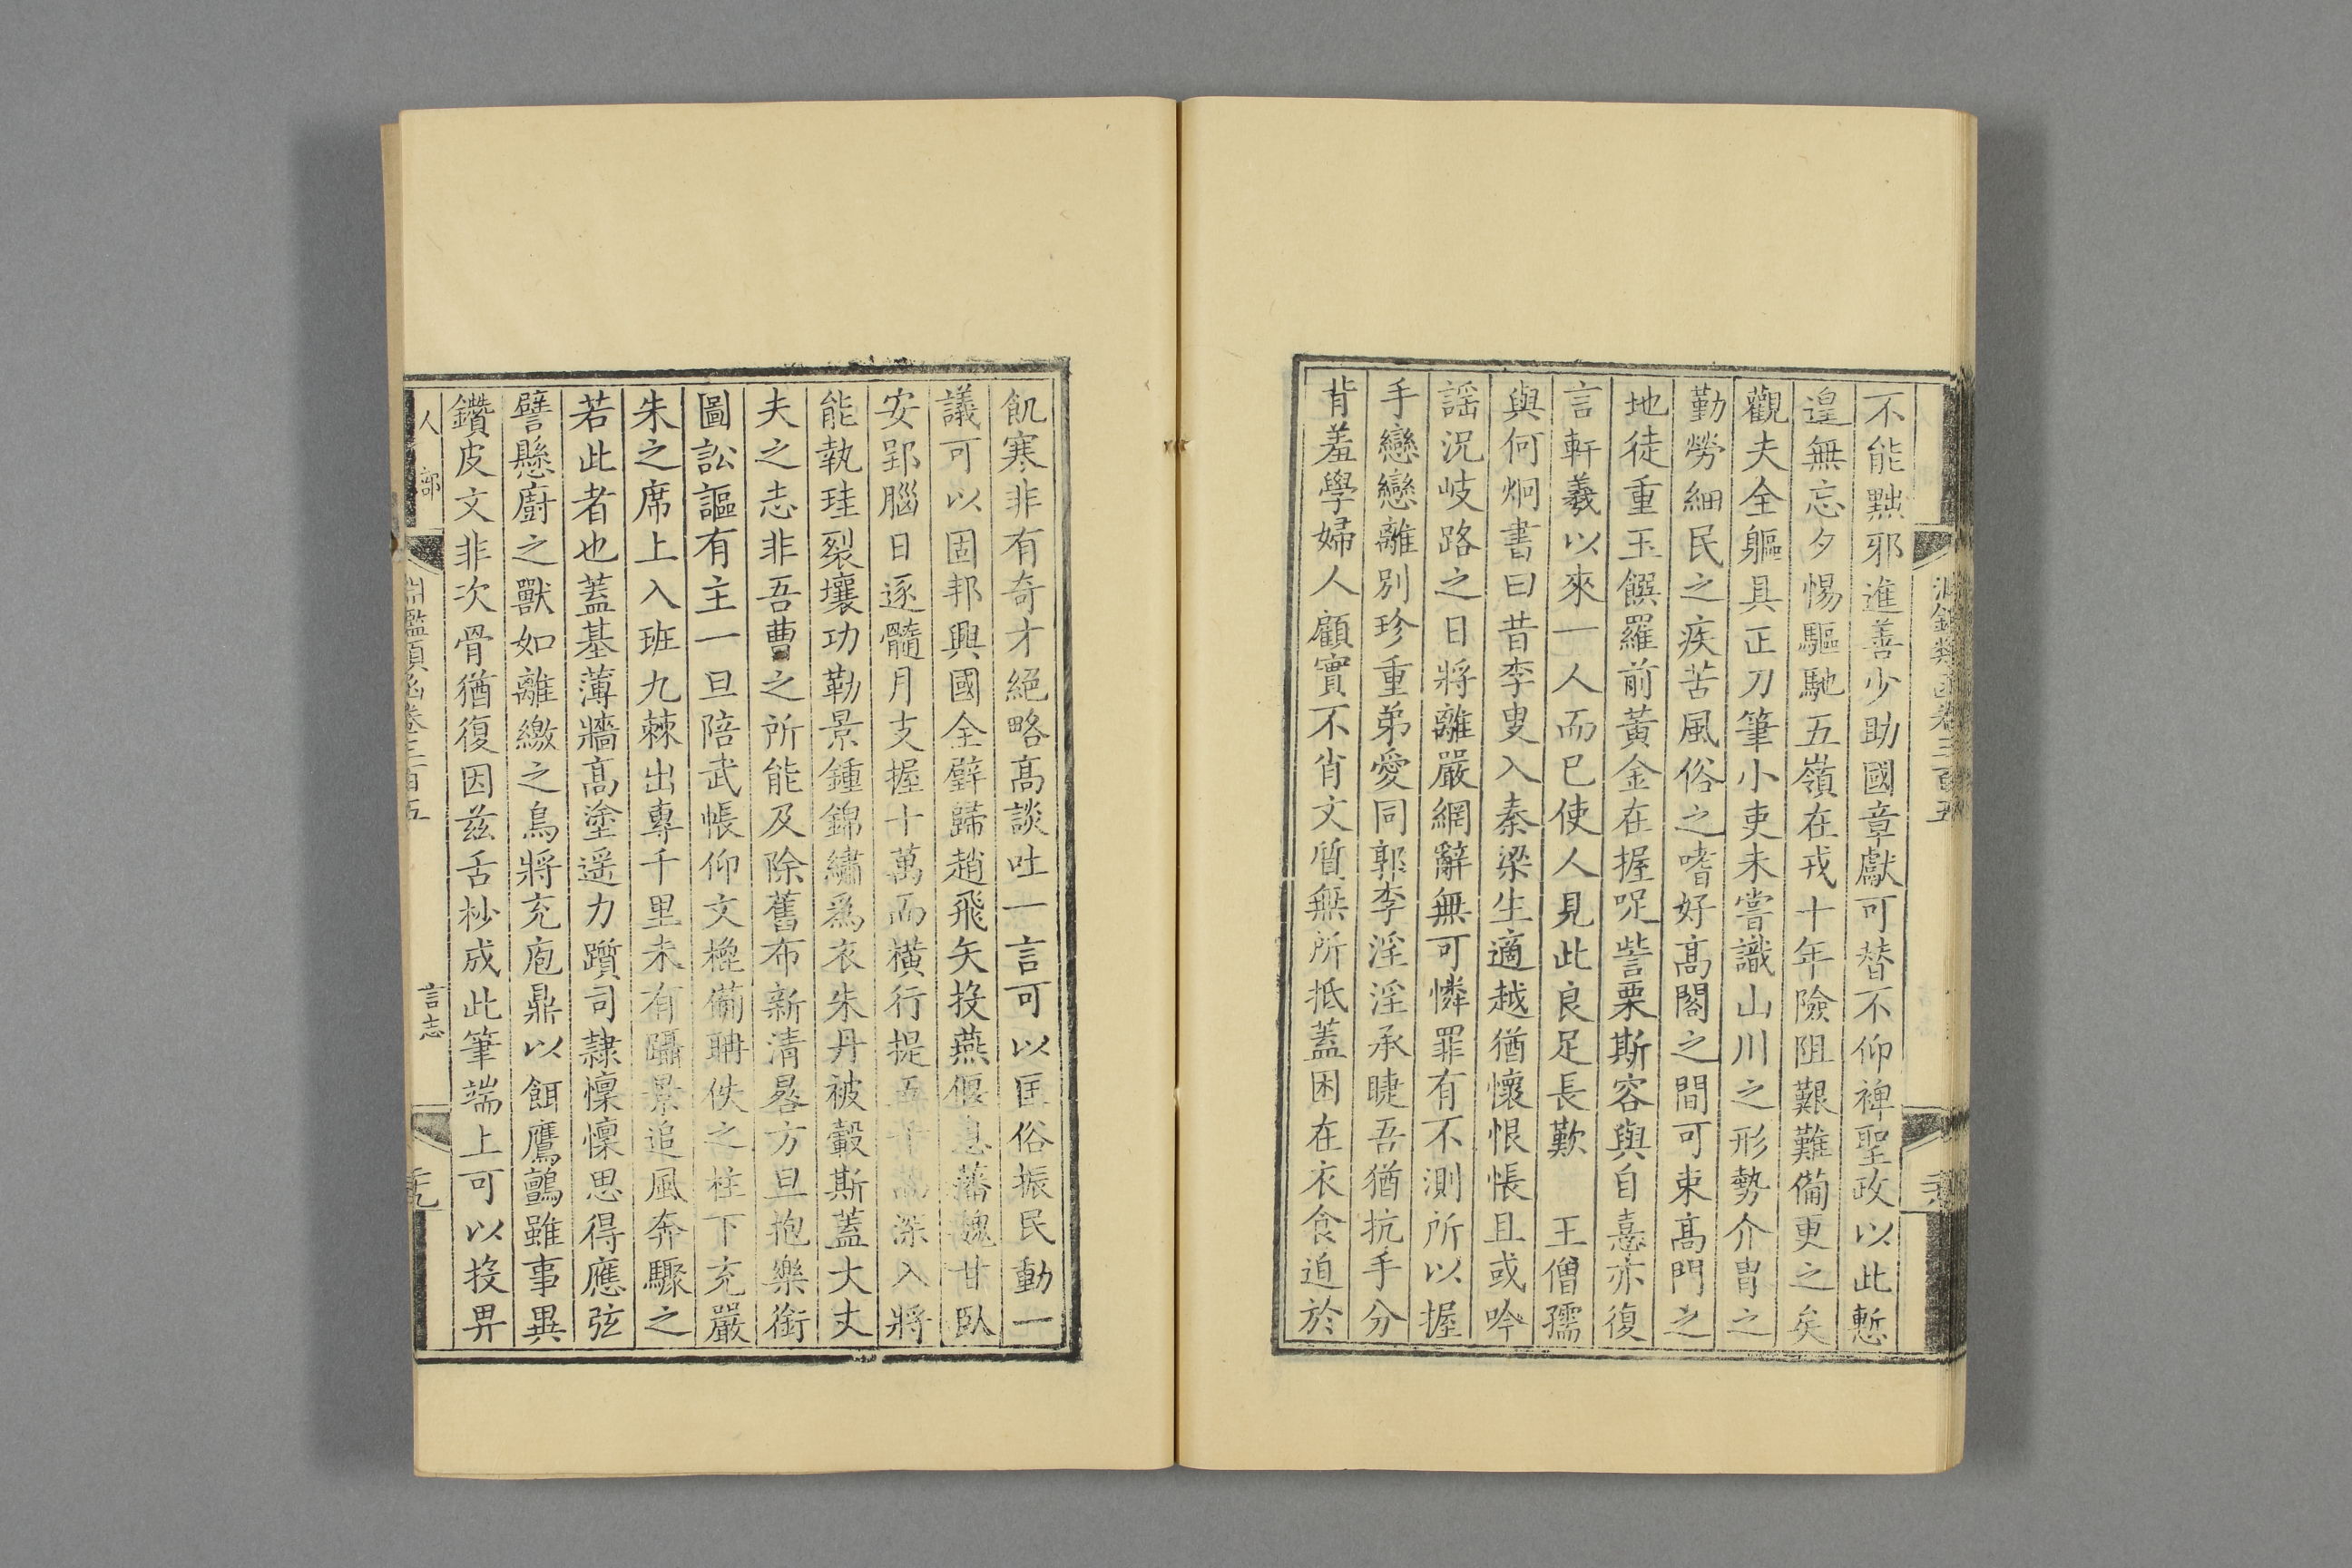 不能黜邪進善少助國章獻可替不仰裨聖政以此慙
遑無忘夕惕驅馳五嶺在戎十年險阻艱難備更之矣
觀夫全軀具正刀筆小吏未嘗識山川之形勢介胄之
勤勞細民之疾苦風俗之嗜好高閣之間可束高門之
地徒重玉饌羅前黃金在握哫訾栗斯容與自憙亦復
言軒羲以來一人而已使人見此良足長歎 王僧孺
與何炯書曰昔李叟入秦梁生適越猶懷恨悵且或吟
謠況岐路之日將離嚴網辭無可憐罪有不測所以握
手戀戀離別珍重弟愛同郭李淫淫承睫吾猶抗手分
背羞學婦人顧實不肖文質無所抵蓋困在衣食迫於
飢寒非有奇才絕略高談吐一言可以匡俗振民動一
議可以固邦興國全璧歸趙飛矢投燕偃息藩魏甘臥
安郢腦日逐髓月支握十萬而橫行提五千而深入將
能執珪裂壤功勒景鍾錦繡爲衣朱丹被轂斯蓋大丈
夫之志非吾曹之所能及除舊布新清晷方旦抱樂銜
圖訟謳有主一旦陪武帳仰文槐備聃佚之柱下充嚴
朱之席上入班九棘出專千里未有躡景追風奔驟之
若此者也蓋基薄牆高塗遥力躓司隸懍懍思得應弦
譬懸廚之獸如離繳之鳥將充庖鼎以餌鷹鸇雖事異
鑽皮文非次骨猶復因兹舌杪成此筆端上可以投畀
人部
淵鑑類函卷三百五
言志